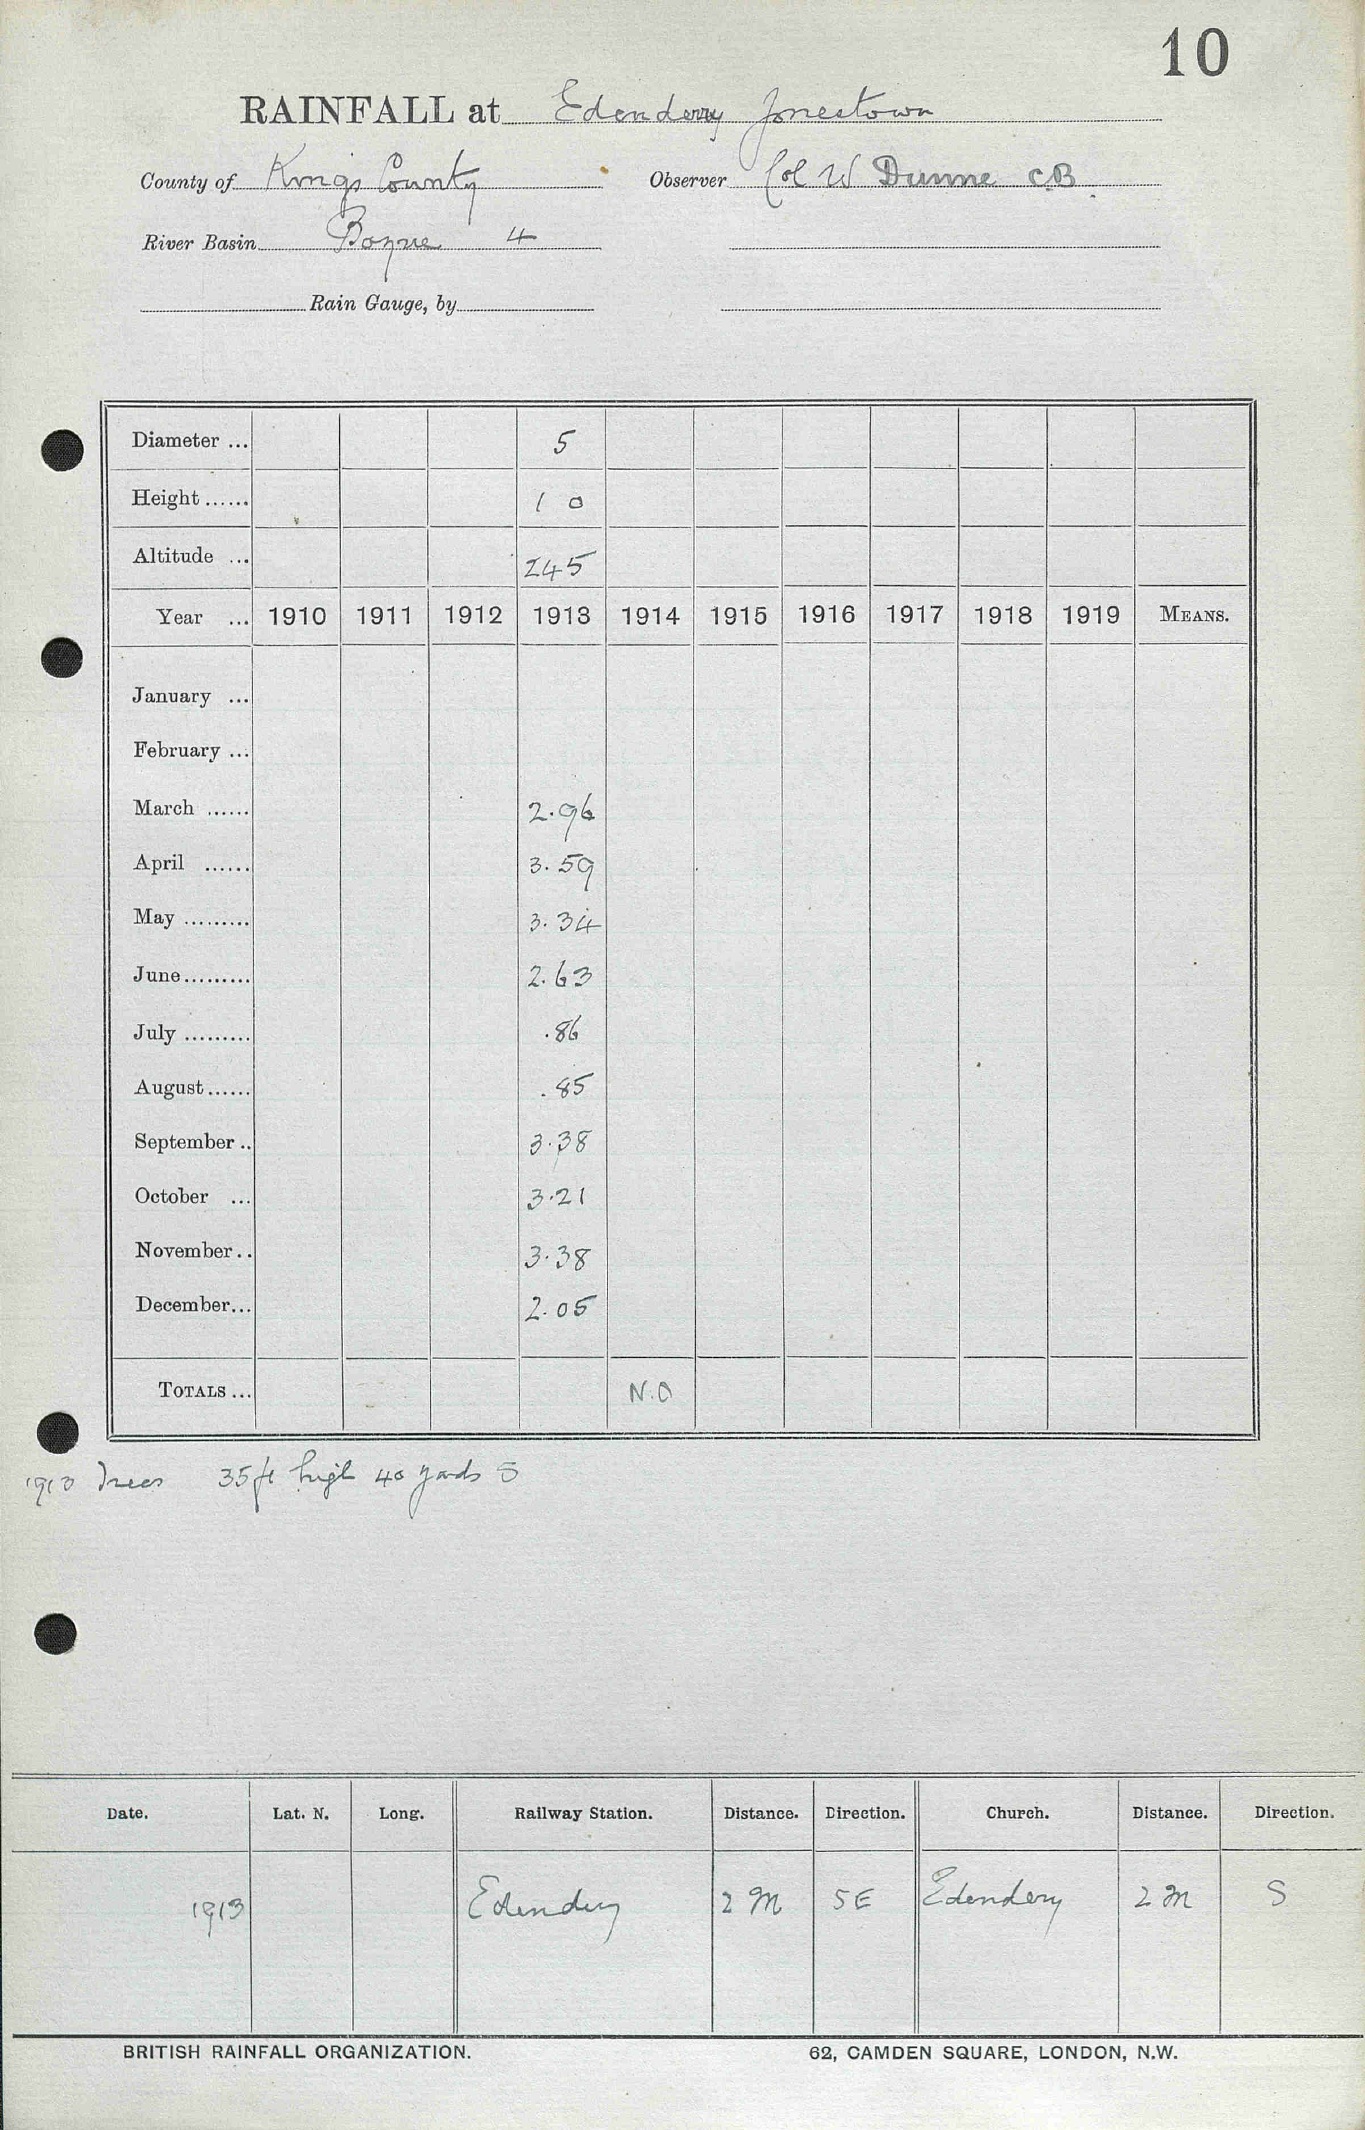 10
RAINFALL at Edenderry Jonestown
County of Kings County Observer Col W Dunne C.B.
River Basin Boyne 4
Rain Gauge, by
Diameter ... 5
Height ...... 1 0
Altitude ... 245
Year ... 1910 1911 1912 1913 1914 1915 1916 1917 1918 1919 MEANS.
January ...
February ...
March ...... 2.96
April ...... 3.59
May ......... 3.34
June ......... 2.63
July ......... .86
August ...... .85
September .. 3.38
October ... 3.21
November .. 3.38
December ... 2.05
TOTALS ... N.O
1913 Trees 35ft high 40 yards S
Date. Lat. N. Long. Railway Station. Distance. Direction. Church. Distance. Direction.
1913 Edenderry 2 M SE Edenderry 2 M S
BRITISH RAINFALL ORGANIZATION. 62, CAMDEN SQUARE, LONDON, N.W.